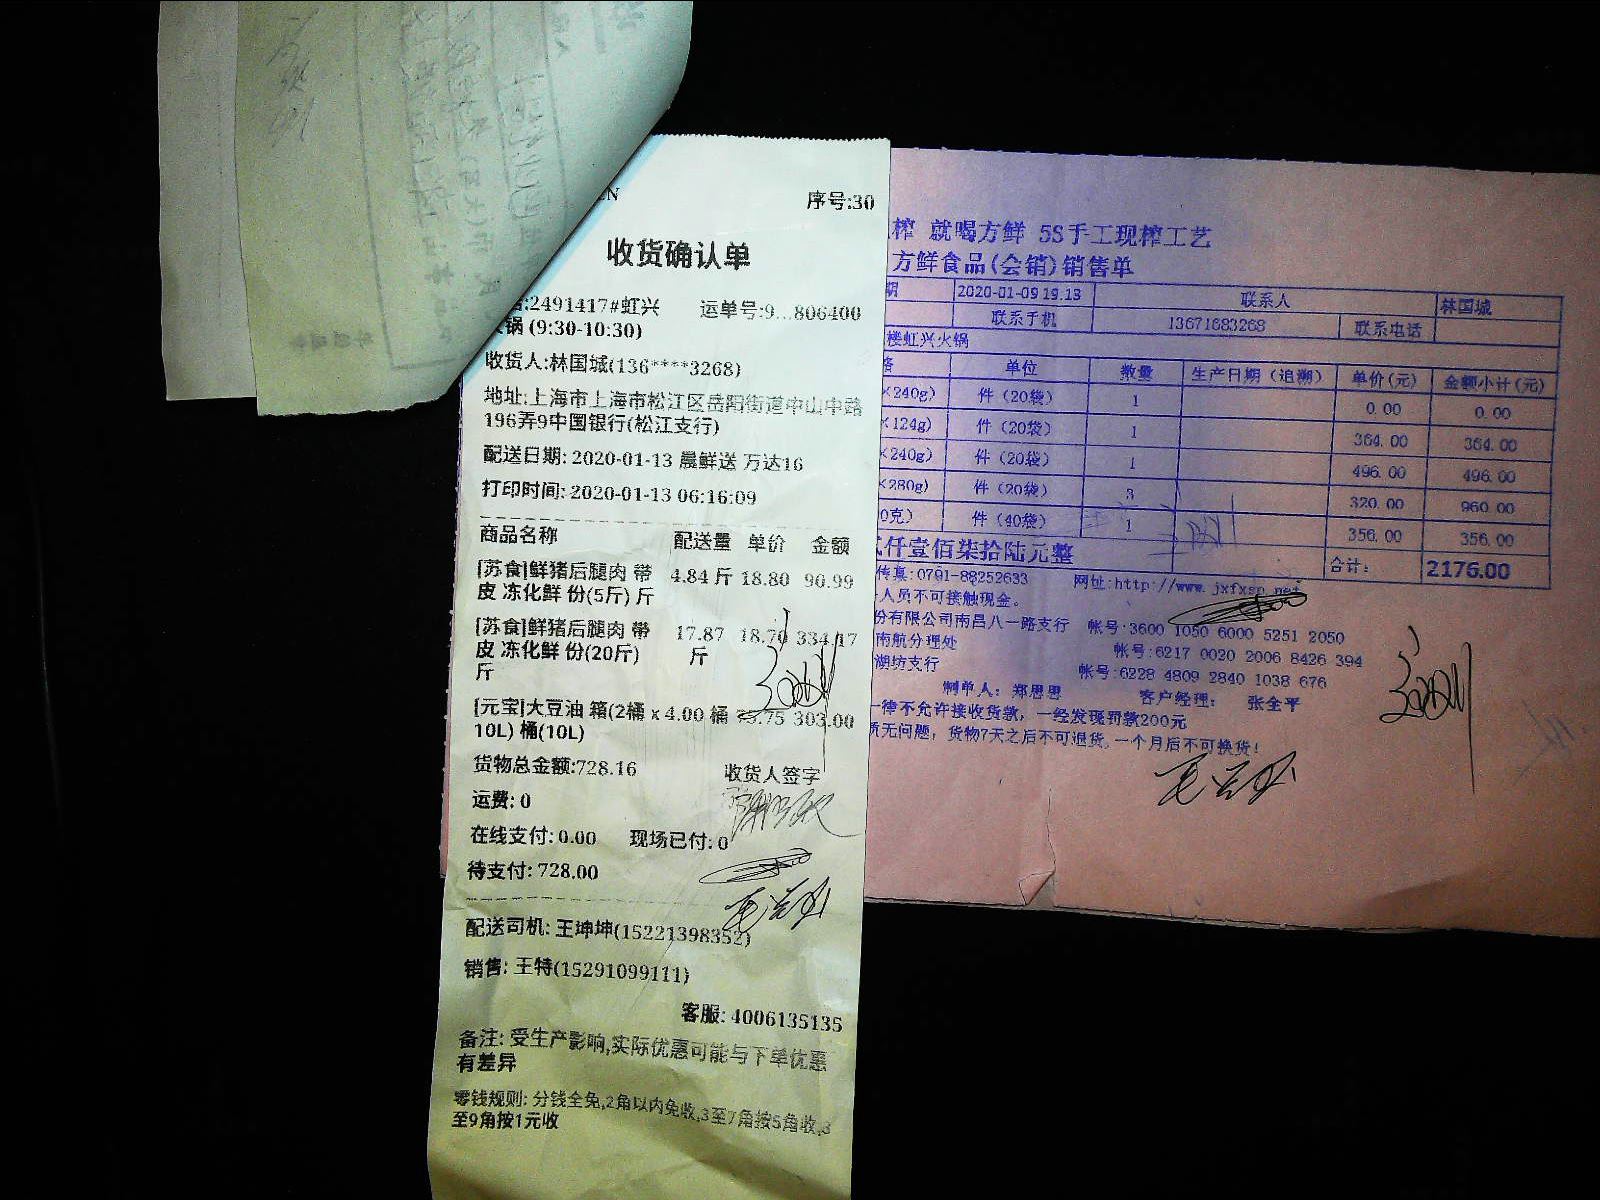 序号:30
收货确认单
:2491417#虹兴 运单号:9...806400
锅 (9:30-10:30)
收货人:林国城(136****3268)
地址:上海市上海市松江区岳阳街道中山中路
196弄9中国银行(松江支行)
配送日期: 2020-01-13 晨鲜送 万达16
打印时间: 2020-01-13 06:16:09
商品名称 配送量 单价 金额
[苏食]鲜猪后腿肉 带 4.84 斤 18.80 90.99
皮 冻化鲜 份(5斤) 斤
[苏食]鲜猪后腿肉 带 17.87 18.70 334.17
皮 冻化鲜 份(20斤) 斤
斤
[元宝]大豆油 箱(2桶 x 4.00 桶 75.75 303.00
10L) 桶(10L)
货物总金额:728.16 收货人签字
运费: 0
在线支付: 0.00 现场已付: 0
待支付: 728.00
配送司机: 王坤坤(15221398352)
销售: 王特(15291099111)
客服: 4006135135
备注: 受生产影响,实际优惠可能与下单优惠
有差异
零钱规则: 分钱全免,2角以内免收,3至7角按5角收,8
至9角按1元收
榨 就喝方鲜 5S手工现榨工艺
方鲜食品(会销)销售单
期 2020-01-09 19.13 联系人 林国城
联系手机 13671683268 联系电话
楼虹兴火锅
格 单位 数量 生产日期（追溯） 单价(元) 金额小计(元)
×240g) 件（20袋） 1 0.00 0.00
×124g) 件（20袋） 1 364.00 364.00
×240g) 件（20袋） 1 496.00 496.00
×280g) 件（20袋） 3 320.00 960.00
0克) 件（40袋） 1 356.00 356.00
仟壹佰柒拾陆元整 合计: 2176.00
传真:0791-88252633 网址:http://www.jxfxsp.net
人员不可接触现金。
份有限公司南昌八一路支行 帐号:3600 1050 6000 5251 2050
南航分理处 帐号:6217 0020 2006 8426 394
湖坊支行 帐号:6228 4809 2840 1038 676
制单人: 郑思思 客户经理: 张全平
一律不允许接收货款, 一经发现罚款200元
质无问题, 货物7天之后不可退货, 一个月后不可换货!